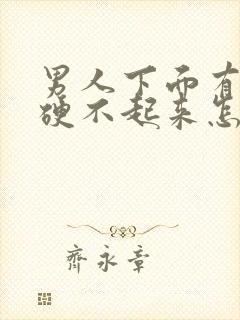 男人下面有
硬不起来怎
齐永章